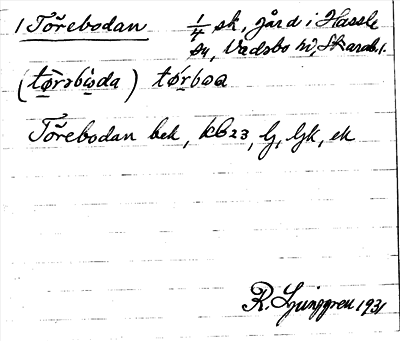 1 Törebodan 1/4 sk, gård i Hassle
sn, Vadsbo hd, Skarab. l.
(tørəboda) tørboa
Törebodan bek, kb 23, lj, ljk, ek
R. Ljunggren 1931